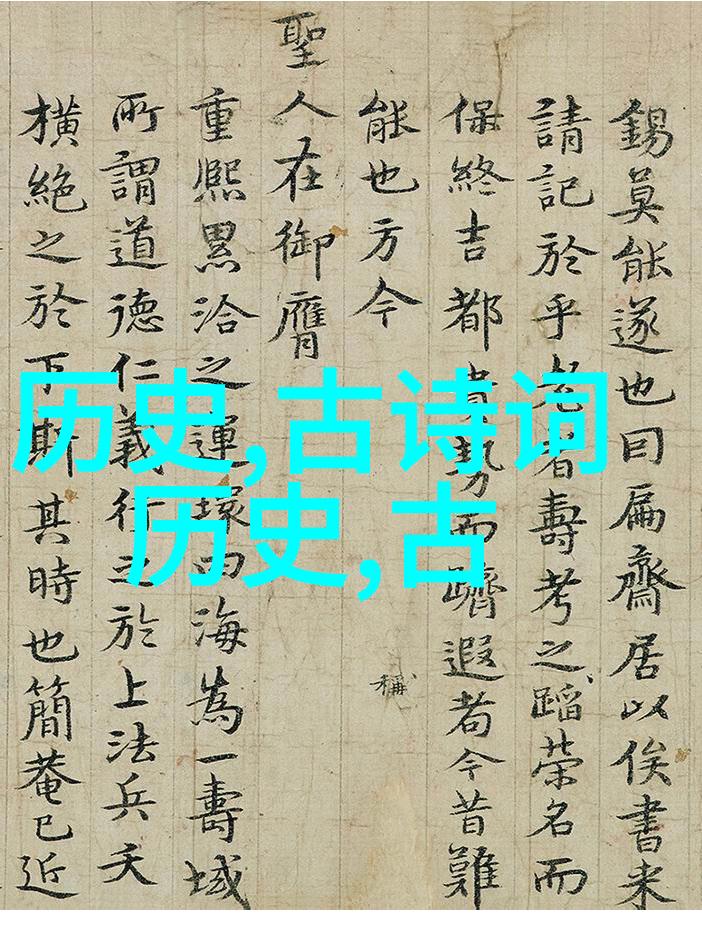 錫莫能遂也曰扁齋居以俟書来
請記於乎老者壽考之蹈榮名而
保終吉都貴勢而躋遐耉今昔難
稱
能也方今
聖人在御膺
重熈累洽之運環四海為一壽域
所謂道德仁義行之於上法兵夭
橫絶之於下斯其時也簡菴已近
历史,古诗词
历史,古